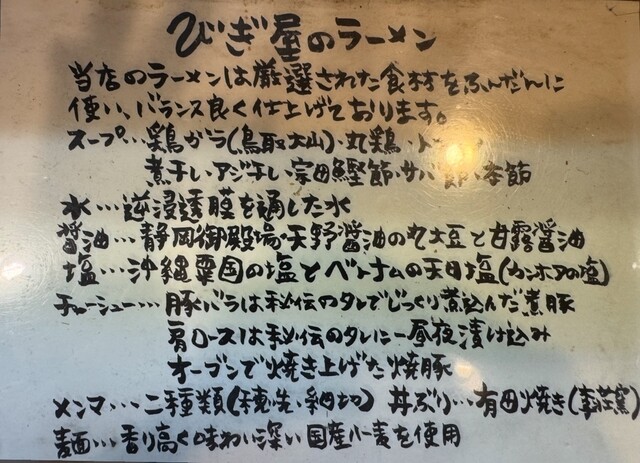 びぎ屋のラーメン
当店のラーメンは厳選された食材をふんだんに
使い、バランス良く仕上げております。
スープ…鶏ガラ(鳥取大山)・丸鶏・
煮干し・アジ干し・宗田鰹節・サバ節・本節
水…逆浸透膜を通した水
醤油…静岡御殿場・天野醤油の丸大豆と甘露醤油
塩…沖縄粟国の塩とベトナムの天日塩(カンホアの塩)
チャーシュー…豚バラは秘伝のタレでじっくり煮込んだ煮豚
肩ロースは秘伝のタレに一昼夜漬け込み
オーブンで焼き上げた焼豚
メンマ…二種類(穂先・細切) 丼ぶり…有田焼き(李荘窯)
麺…香り高く味わい深い国産小麦を使用